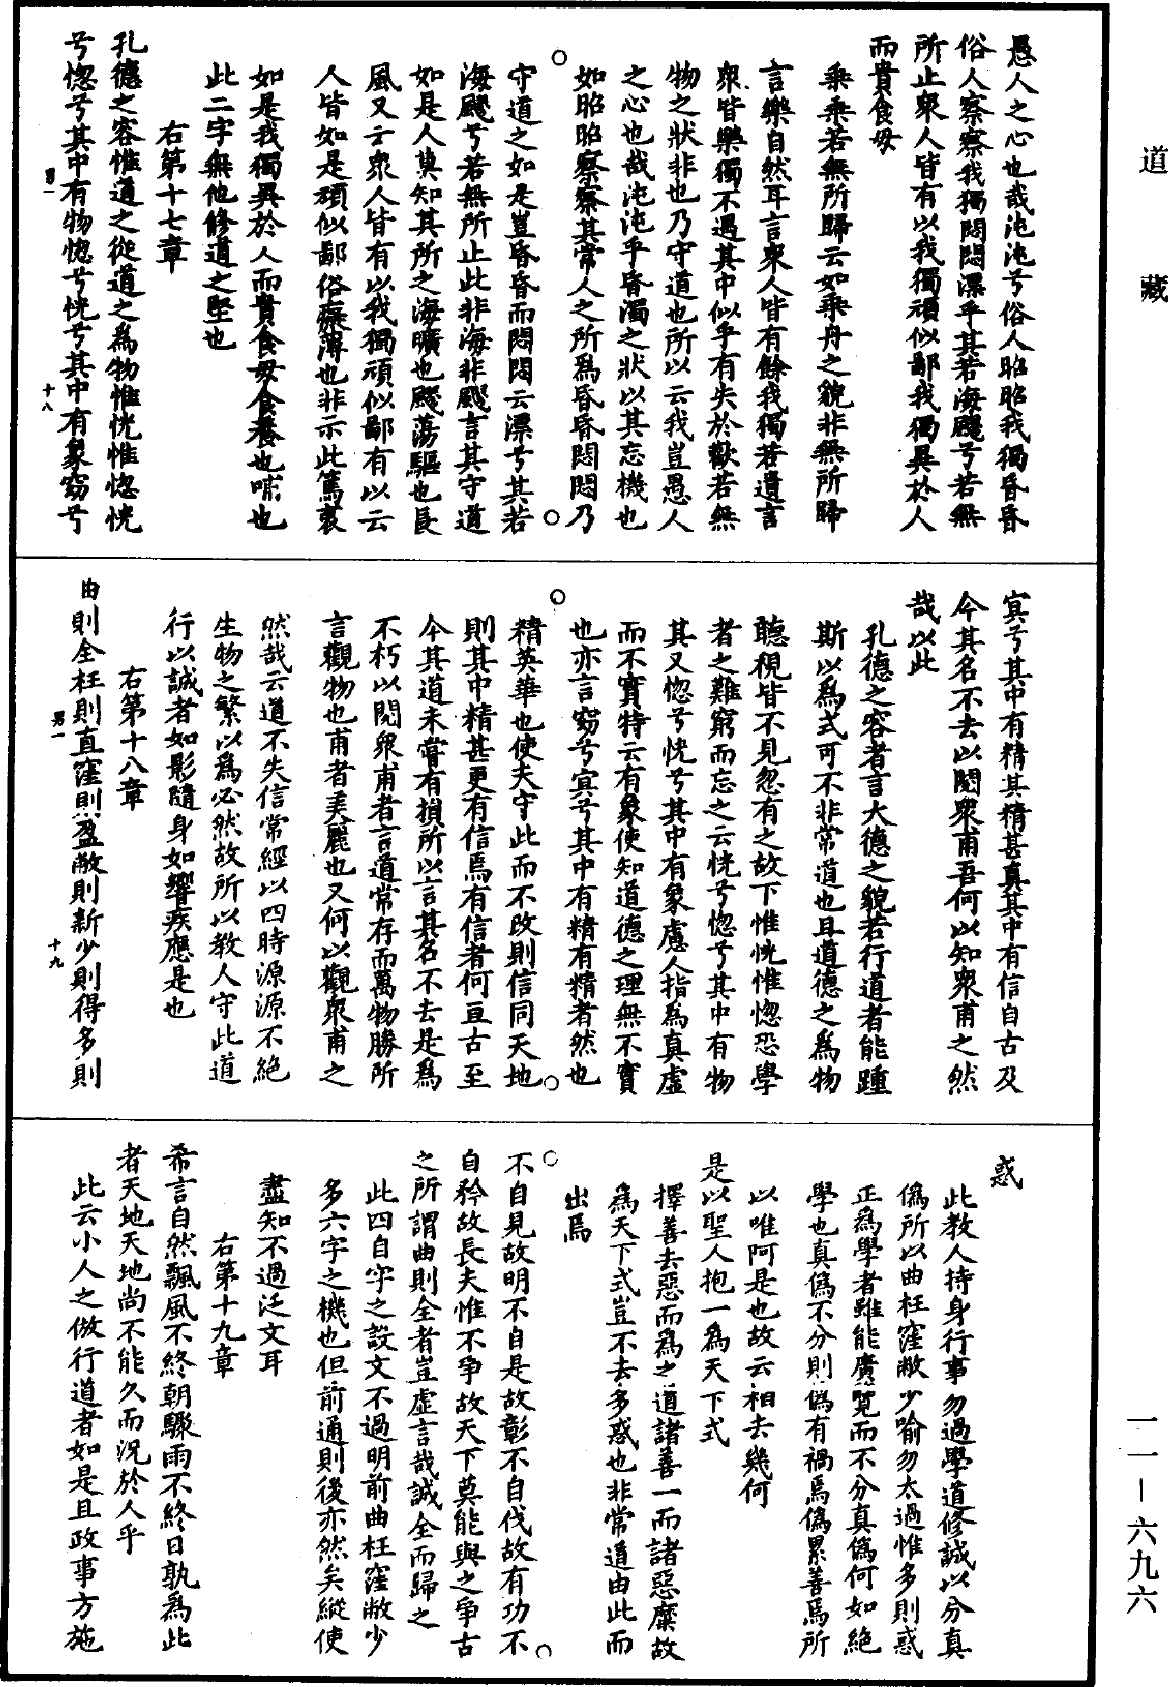 道藏
愚人之心也哉沌沌兮俗人昭昭我獨昏昏
俗人察察我獨悶悶漂乎其若海飂兮若無
所止衆人皆有以我獨頑似鄙我獨異於人
而貴食母
乘乘若無所歸云如乘舟之貌非無所歸
言樂自然耳言衆人皆有餘我獨若遺言
衆皆樂獨不遇其中似乎有失於歡若無
物之狀非也乃守道也所以云我豈愚人
之心也哉沌沌乎昏濁之狀以其忘機也
如昭昭察察其常人之所爲昏昏悶悶乃
守道之如是豈昏昏而悶悶云漂兮其若
海飂兮若無所止此非海非飂言其守道
如是人莫知其所之海曠也飂蕩驅也長
風又云衆人皆有以我獨頑似鄙有以云
人皆如是頑似鄙俗癡薄也非示此篤裂
如是我獨異於人而貴食母食養也哺也
此二字無他修道之堅也
右第十七章
孔德之容惟道之從道之爲物惟恍惟惚恍
兮惚兮其中有物惚兮恍兮其中有象窈兮
男一
十八
冥兮其中有精其精甚真其中有信自古及
今其名不去以閱衆甫吾何以知衆甫之然
哉以此
孔德之容者言大德之貌若行道者能踵
斯以爲式可不非常道也且道德之爲物
聽視皆不見忽有之故下惟恍惟惚恐學
者之難窮而忘之云恍兮惚兮其中有物
其又惚兮恍兮其中有象慮人指爲真虛
而不實特云有象使知道德之理無不實
也亦言窈兮冥兮其中有精有精者然也
精英華也使夫守此而不改則信同天地
則其中精甚更有信焉有信者何亘古至
今其道未嘗有損所以言其名不去是爲
不朽以閱衆甫者言道常存而萬物勝所
言觀物也甫者美麗也又何以觀衆甫之
然哉云道不失信常經以四時源源不絕
生物之繁以爲必然故所以教人守此道
行以誠者如影隨身如響疾應是也
右第十八章
曲則全枉則直窪則盈敝則新少則得多則
男一
十九
惑
此教人持身行事勿過學道修誠以分真
僞所以曲枉窪敝少喻勿太過惟多則惑
正爲學者雖能廣覽而不分真僞何如絕
學也真僞不分則僞有禍焉僞累善焉所
以唯阿是也故云相去幾何
是以聖人抱一爲天下式
擇善去惡而爲之道諸善一而諸惡糜故
爲天下式豈不去多惑也非常道由此而
出焉
不自見故明不自是故彰不自伐故有功不
自矜故長夫惟不爭故天下莫能與之爭古
之所謂曲則全者豈虛言哉誠全而歸之
此四自字之設文不過明前曲枉窪敝少
多六字之機也但前通則後亦然矣縱使
盡知不過泛文耳
右第十九章
希言自然飄風不終朝驟雨不終日孰爲此
者天地天地尚不能久而況於人乎
此云小人之倣行道者如是且政事方施
一一－六九六